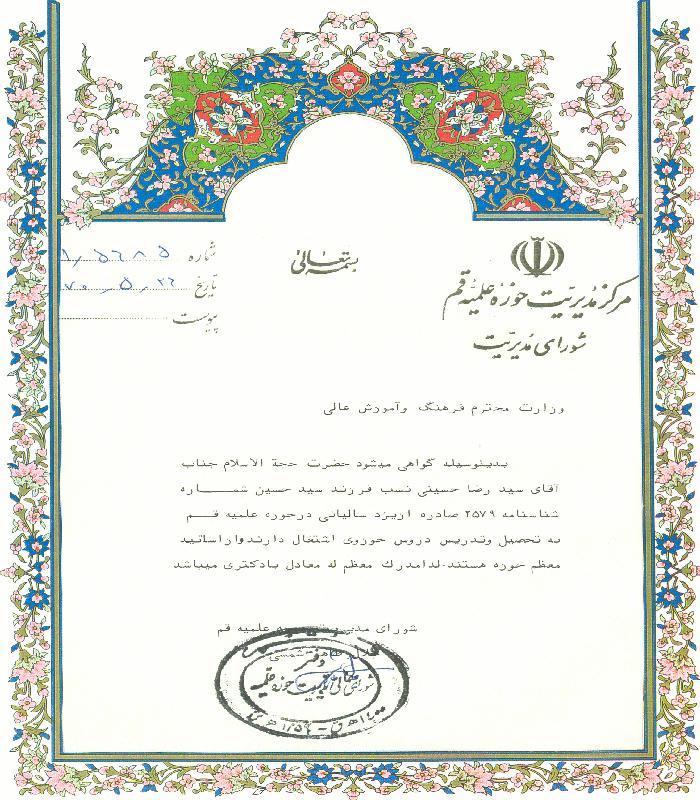 بسمه تعالی
مرکز مدیریت حوزه علمیه قم
شورای مدیریت
شماره ۵۶۸۵
تاریخ ۷۰٫۵٫۲۲
پیوست
وزارت محترم فرهنگ وآموزش عالی
بدینوسیله گواهی میشود حضرت حجة الاسلام جناب
آقای سید رضا حسینی نسب فرزند سید حسین شمـــاره
شناسنامه ۲۵۷۹ صادره ازیزد سالیانی درحوزه علمیه قـــم
به تحصیل وتدریس دروس حوزوی اشتغال دارند وازاساتید
معظم حوزه هستند.لذامدرك معظم له معادل بادکتری میباشد
شورای علمیه قم
دفتر
شورای عالی مدیریت حوزه علمیه